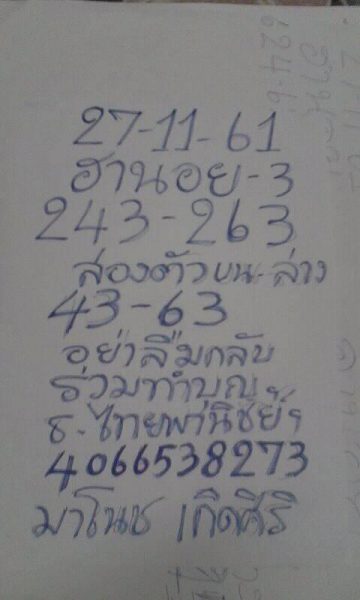 27-11-61
ฮานอย-3
243-263
สองตัวบน-ล่าง
43-63
อย่าลืมกลับ
ร่วมทำบุญ
ธ.ไทยพานิชย์ฯ
4066538273
มาโนช เกิดศิริ